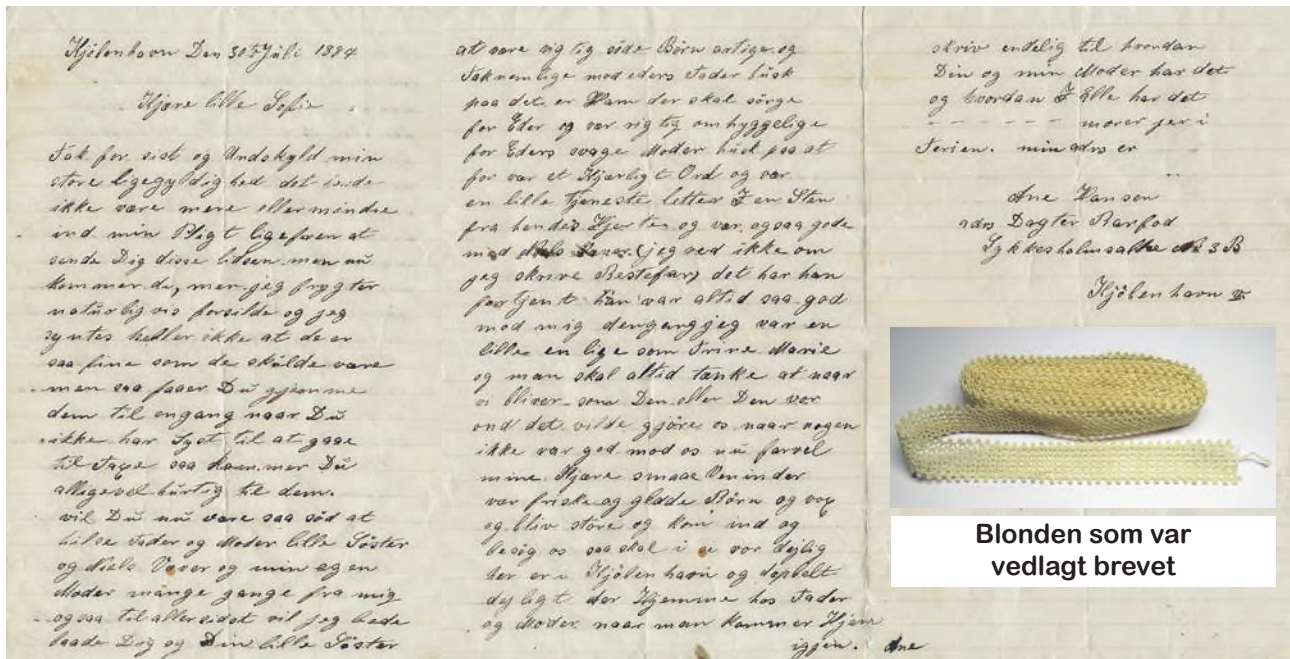 Kjöbenhavn Den 30te Juli 1884
Kjære lille Sofie
Tak for sist og Undskyld min
store ligegyldighed det
ikke være mere eller mindre
ind min Pligt ligefrem at
sende Dig disse men nu
kommer de, men jeg frygter
naturligvis forsilde og jeg
syntes heller ikke at de er
saa fine som de skulde være
men saa faaer Du gjemme
dem til engang naar Du
ikke har Lyst til at gaae
til saa kommer Du
alligevel hurtig til dem.
vil Du nu være saa söd at
hilse Fader og Moder lille Söster
og Niels og min egen
Moder mange gange fra mig
og saa til allersidst vil jeg bede
baade Dig og Din lille Söster
at være rigtig söde Börn artige og
Taknemlige mod eders Fader husk
paa det er Ham der skal sörge
for Eder og vær rigtig omhyggelige
for Eders svage Moder husk paa at
for vær et Kjærligt Ord og vær
en lille tjeneste letter I en Sten
fra hendes Hjerte og vær ogsaa gode
mod Niels (jeg ved ikke om
jeg skrive Bestefar) det har han
fortjent han var altid saa god
mod mig dengang jeg var en
lille en lige som Trine Marie
og man skal altid tænke at naar
vi bliver som Den eller Den vor
ond det vilde gjöre os naar nogen
ikke var god mod os nu farvel
mine Kjære smaae Veninder
vær friske og gladde Börn og vox
og bliv store og kom ind og
besög os saa skal i se vor dejlig
her er i Kjöbenhavn og dopbelt
dejligt der Hjemme hos Fader
og Moder naar man kommer Hjem
iggjen. Ane
skriv endelig til hvordan
Din og min Moder har det
og hvordan I Alle har det
- - - - - - morer jer i
Ferien. min adrs er
Ane Hansen
adrs Dagter Barfod
3 B
Kjöbenhavn V
Blonden som var
vedlagt brevet